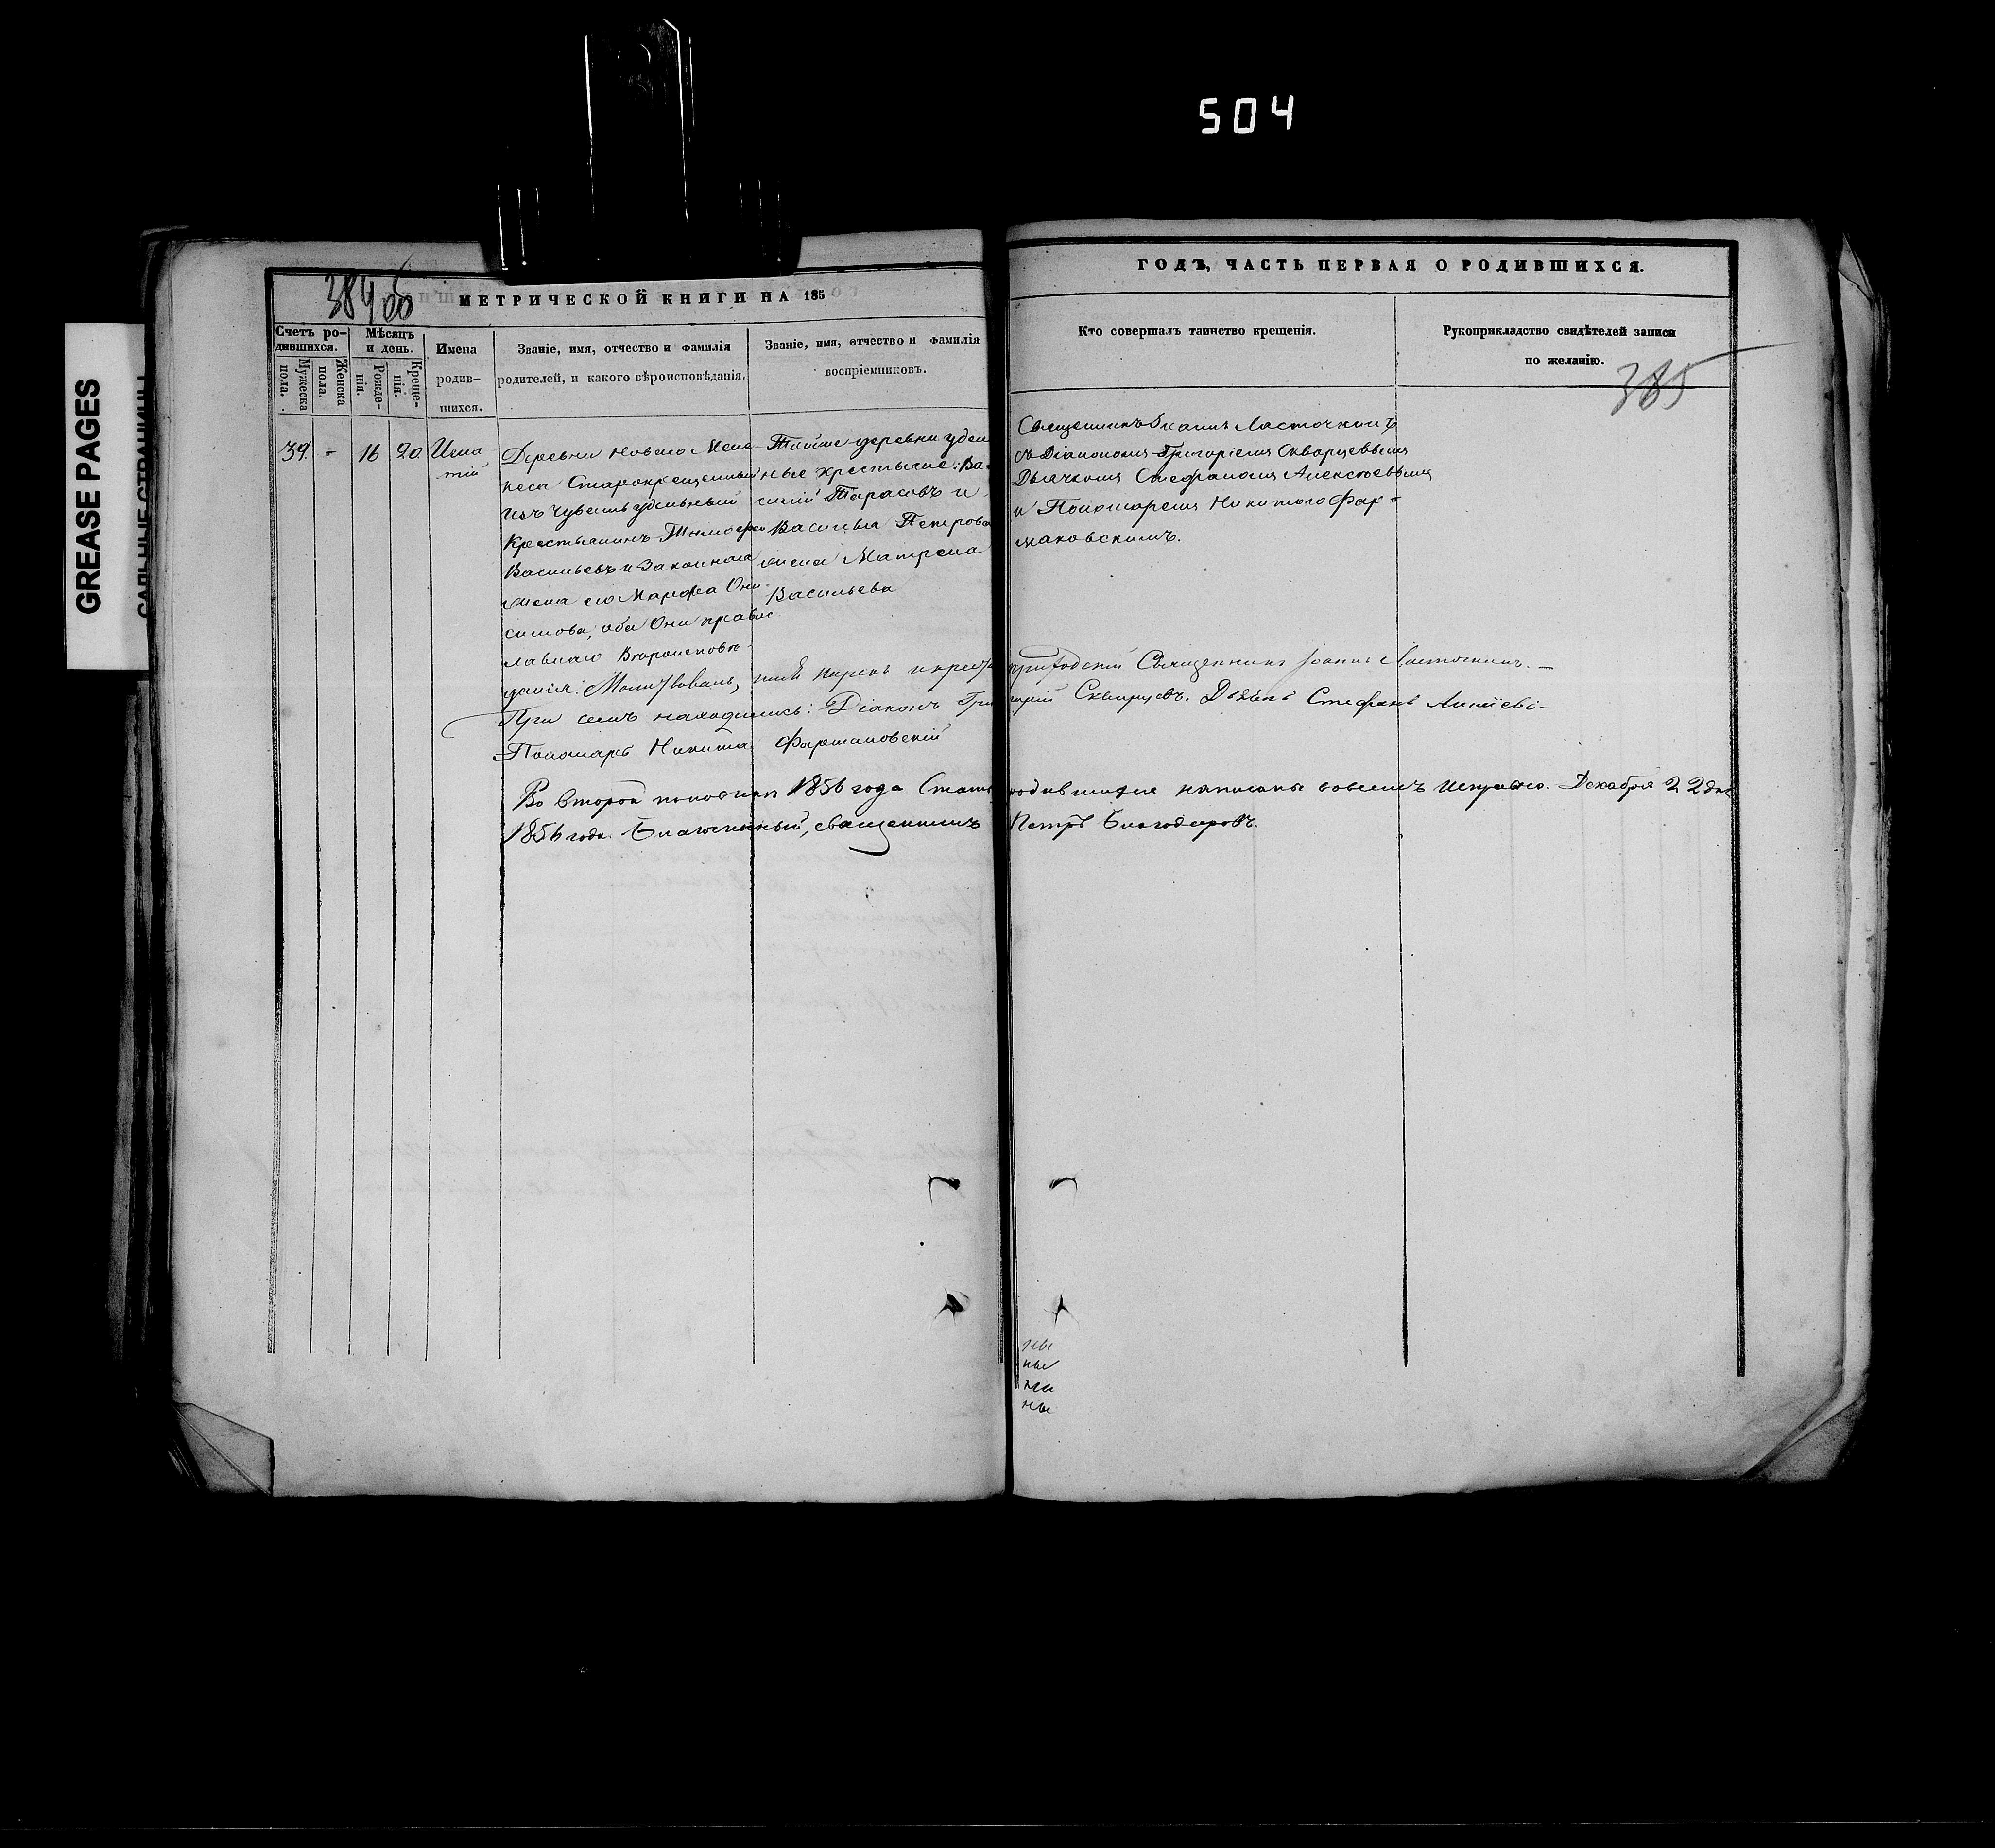 504
GREASE PAGES
САЛЬНЫЕ СТРАНИЦЫ
384 об
МЕТРИЧЕСКОЙ КНИГИ НА 185
ГОДЪ, ЧАСТЬ ПЕРВАЯ О РОДИВШИХСЯ.
385
Счетъ ро-
дившихся.
Мужеска
пола.
Женска
пола.
Мѣсяцъ
и день.
Рожде-
нія.
Креще-
нія.
Имена
родив-
шихся.
Званіе, имя, отчество и фамилія
родителей, и какого вѣроисповѣданія.
Званіе, имя, отчество и фамилія
воспріемниковъ.
Кто совершалъ таинство крещенія.
Рукоприкладство свидѣтелей записи
по желанію.
39. - 16 20
Игна
тій
Деревни Новаго
Старокрещенный
изъ Чувашъ удѣльный
Крестьянинъ Тимофей
Васильевъ и Законная
жена его Марфа Они-
симова, оба Они правос-
лавнаго Вѣроисповѣ-
данія.
Тойже деревни удѣль
ные крестьяне: Ва-
силій Тарасовъ и
Васильа Петрова
жена Матрена
Васильева
Священникъ Іоаннъ Ласточкинъ
съ Діакономъ Григоріемъ Скворцевымъ
Дьячкомъ Стефаномъ Алексѣевымъ
и Пономаремъ Никитою Фар-
маковскимъ.
Молитвовалъ, имя нарекъ и крест приходскій Священникъ Іоаннъ Ласточкинъ. —
При семъ находились: Діаконъ Гри горій Скворцевъ. Дьячекъ Стефанъ
Пономарь Никита Фармаковскій
Во второй половинѣ 1856 года Стать родившихся написаны совсемъ исправно. Декабря 22 дня
1856 года. Благочинный, священникъ Петръ Благодаровъ.
ны
ны
ны
ны